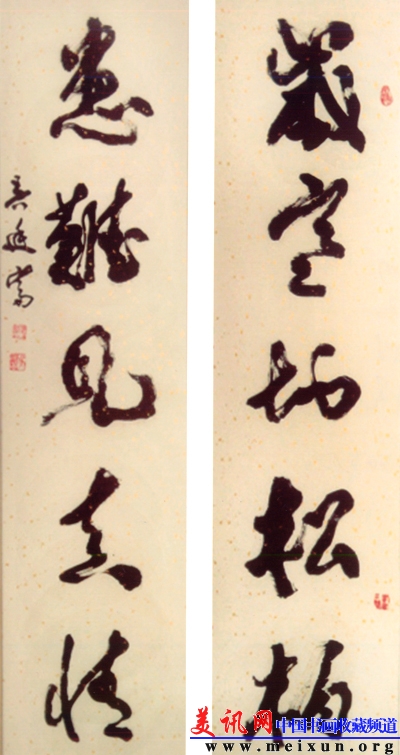 歲寒知松柏
患難見真情
美讯网
中国书画收藏频道
www.meixun.org